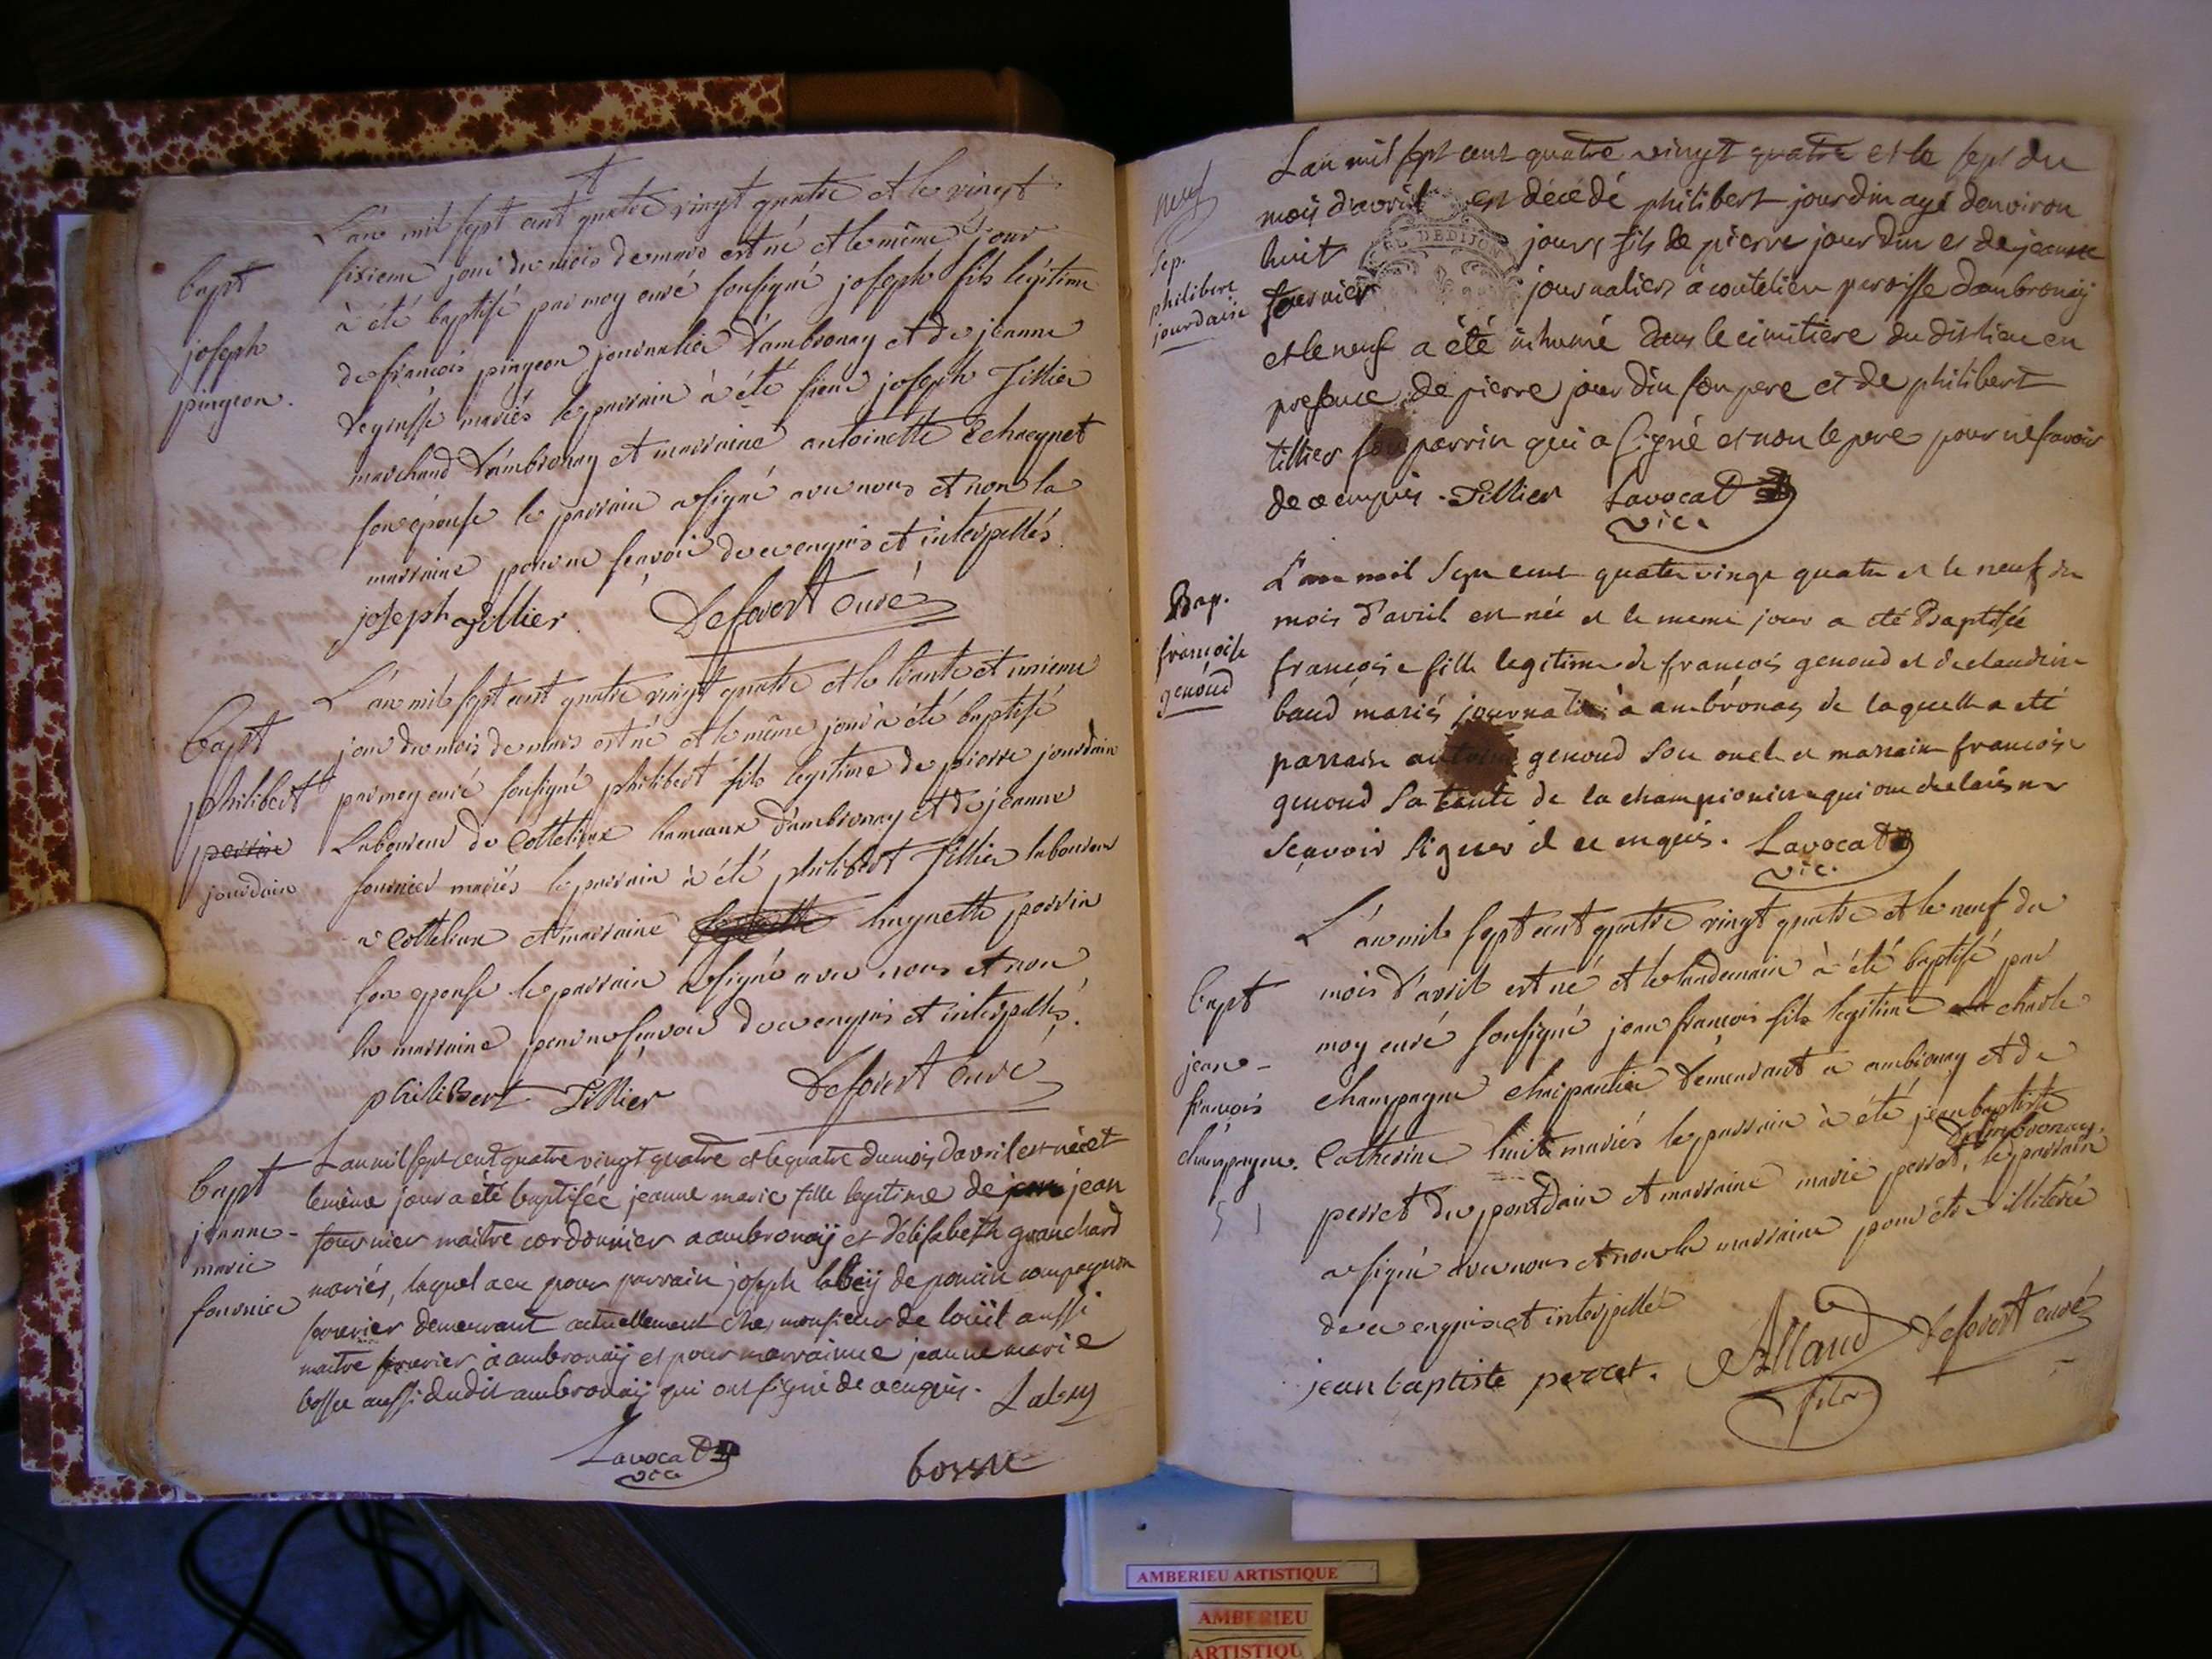 L'an mil sept cent quatre vingt quatre et le vingt
sixieme jour du mois de mars est né et le même jour
à été baptisé par moy curé sousigné joseph fils legitime
de francois pingeon journalier d'ambronay et de jeanne
mariés le parrain à été sieur joseph Tillier
marchand d'ambronay et marraine antoinette
son épouse le parrain a signé avec nous et non la
marraine pour ne sçavoir de ce enquis et interpellés
joseph Tillier Deforest curé
bapt
joseph
pingeon.
L'an mil sept cent quatre vingt quatre et le trante et unieme
jour du mois de mars est né et le même jour à été baptisé
par moy curé sousigné philibert fils legitime de pierre jourdain
Laboureur de Cottelieux hameaux d'ambronay et de jeanne
fournier mariés le parrain à été philibert Tillier laboureur
a Cottelieux et marraine huguette perrin
son epouse le parrain a signé avec nous et non
la marraine pour ne sçavoir de ce enquis et interpellés.
philibert Tillier Deforest curé
bapt
philibert
perrin
jourdain
L'an mil sept cent quatre vingt quatre et le quatre du mois d'avril est née et
le même jour a été baptisée jeanne marie fille legitime de jean
fournier maitre cordonnier a ambronaÿ et d'elisabeth granchard
mariés, laquel a eu pour parrain joseph labeÿ de poncin compagnon
serrurier demeurant actuellement chez monsieur de aussi
maitre serrurier à ambronaÿ et pour marrainne jeanne marie
bosse aussi dudit ambronaÿ qui ont signé de ce enquis. Labey
Lavocat
vic. bosse
bapt
jeanne-
marie
fournier
L'an mil sept cent quatre vingt quatre et le sept du
mois d'avril est décédé philibert jourdin agé d'environ
huit jours, fils de pierre jourdin et de jeanne
fournier journaliers à coutelieu paroisse d'ambronaÿ
et le neuf a été inhumé dans le cimitière du dit lieu en
presence de pierre jourdin son pere et de philibert
tillier son parrin qui a signé et non le pere pour ne savoir
de ce enquis. Tillier Lavocat
vic.
DE DIJON
neuf
Sep.
philibert
jourdain
L'an mil sept cent quatre vingt quatre et le neuf du
mois d'avril est née et le meme jour a été Baptisée
françoise fille legitime de françois genoud et de claudine
baud mariés journaliers à ambronay de laquelle a été
parrain antoine genoud son oncle et marraine françoise
genoud sa tante de la championiere qui ont declaré ne
sçavoir signer de ce enquis. Lavocat
vic.
Bap.
françoise
genoud
L'an mil sept cent quatre vingt quatre et le neuf du
mois d'avril est né et le landemain à été baptisé par
moy curé sousigné jean françois fils legitime de charle
champagne charpantier demeurant a ambronay et de
Catherine mariés le parrain à été jean baptiste
perret du pontdain et marraine marie perret d'ambronay, le parrain
a signé avec nous et non la marraine pour être illiterée
de ce enquis et interpellée
jean baptiste perret. Alland Deforest curé
fils
bapt
jean-
françois
champagne.
5 1
AMBERIEU ARTISTIQUE
AMBERIEU
ARTISTIQU